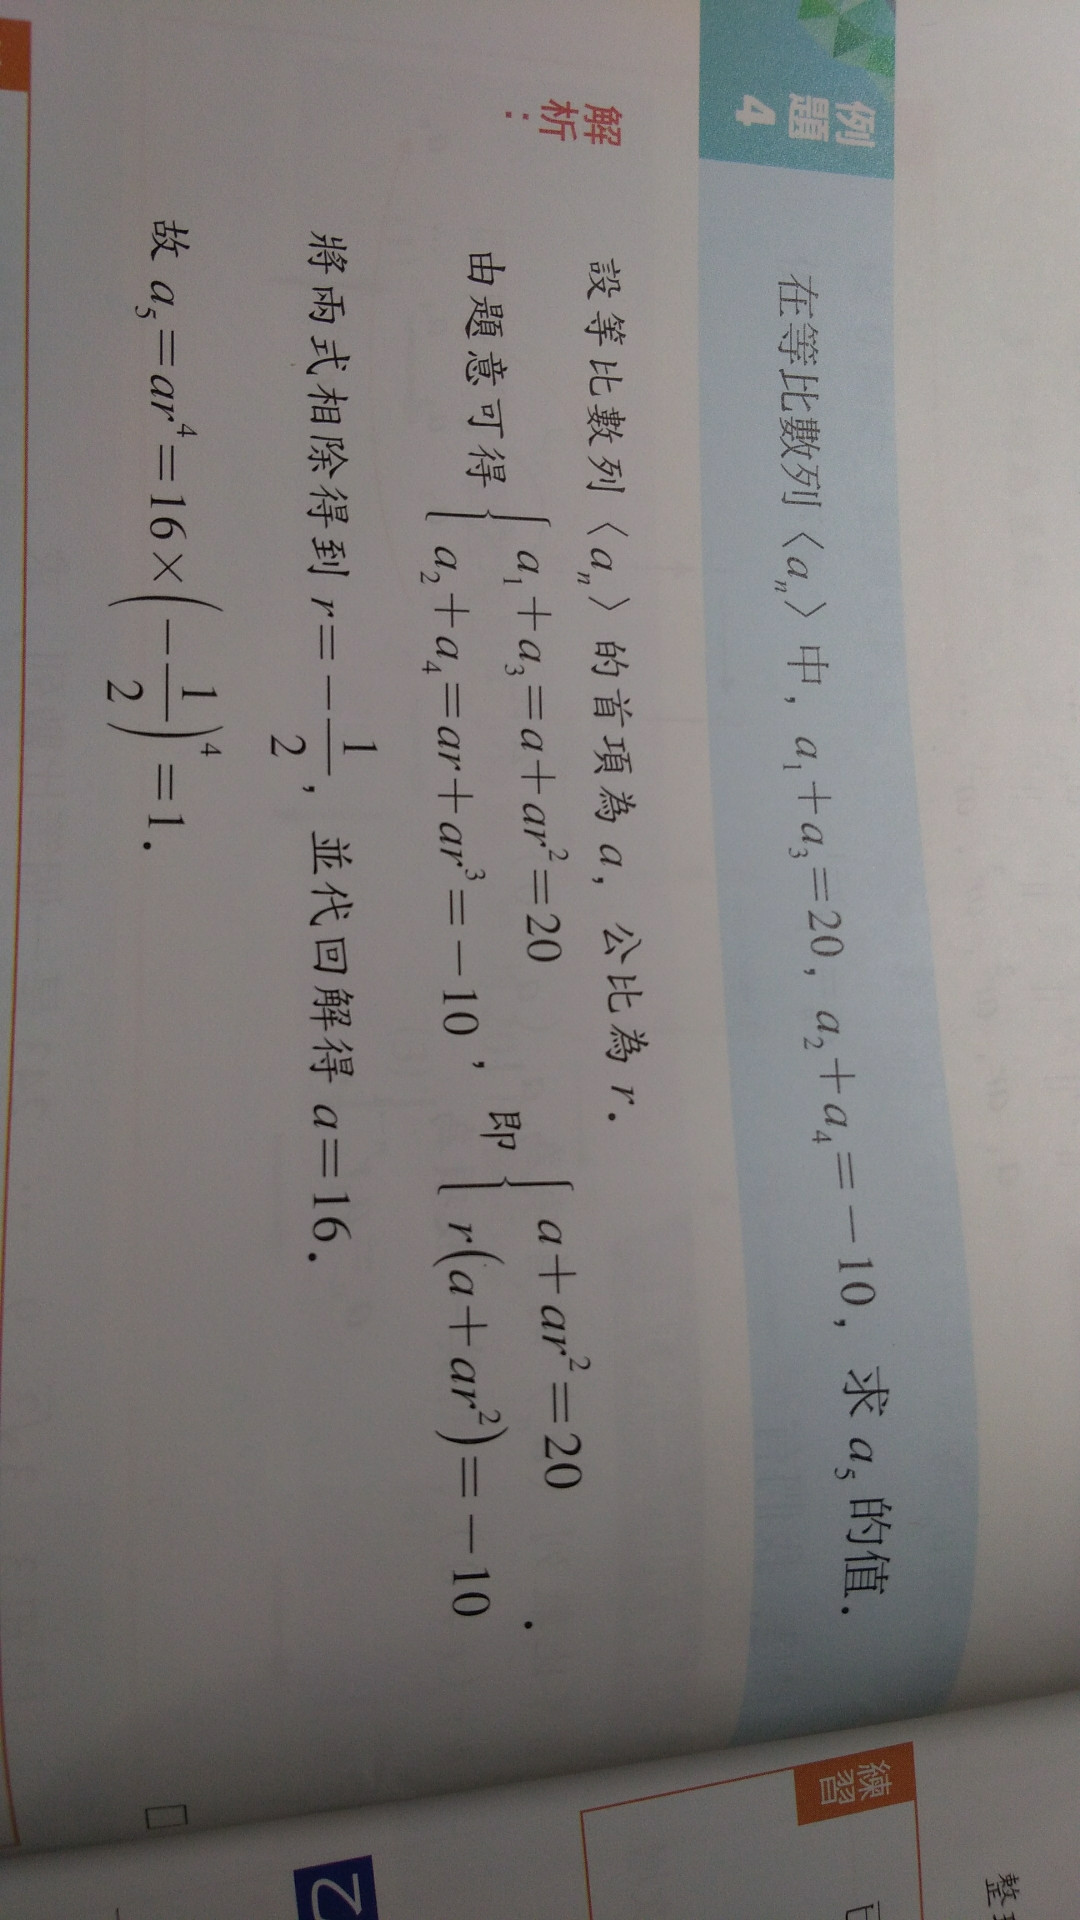 例題4
在等比數列〈aₙ〉中，a₁＋a₃＝20，a₂＋a₄＝－10，求 a₅ 的值．
解析：
設等比數列〈aₙ〉的首項為 a，公比為 r．
由題意可得 { a₁＋a₃＝a＋ar²＝20
a₂＋a₄＝ar＋ar³＝－10 ，即 { a＋ar²＝20
r(a＋ar²)＝－10 ．
將兩式相除得到 r＝－1/2，並代回解得 a＝16．
故 a₅＝ar⁴＝16×(－1/2)⁴＝1．
練習